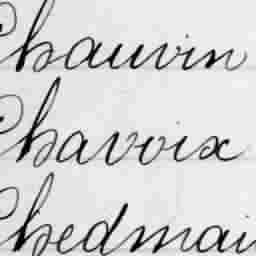 Chauvin
Chavoix
Chedmai